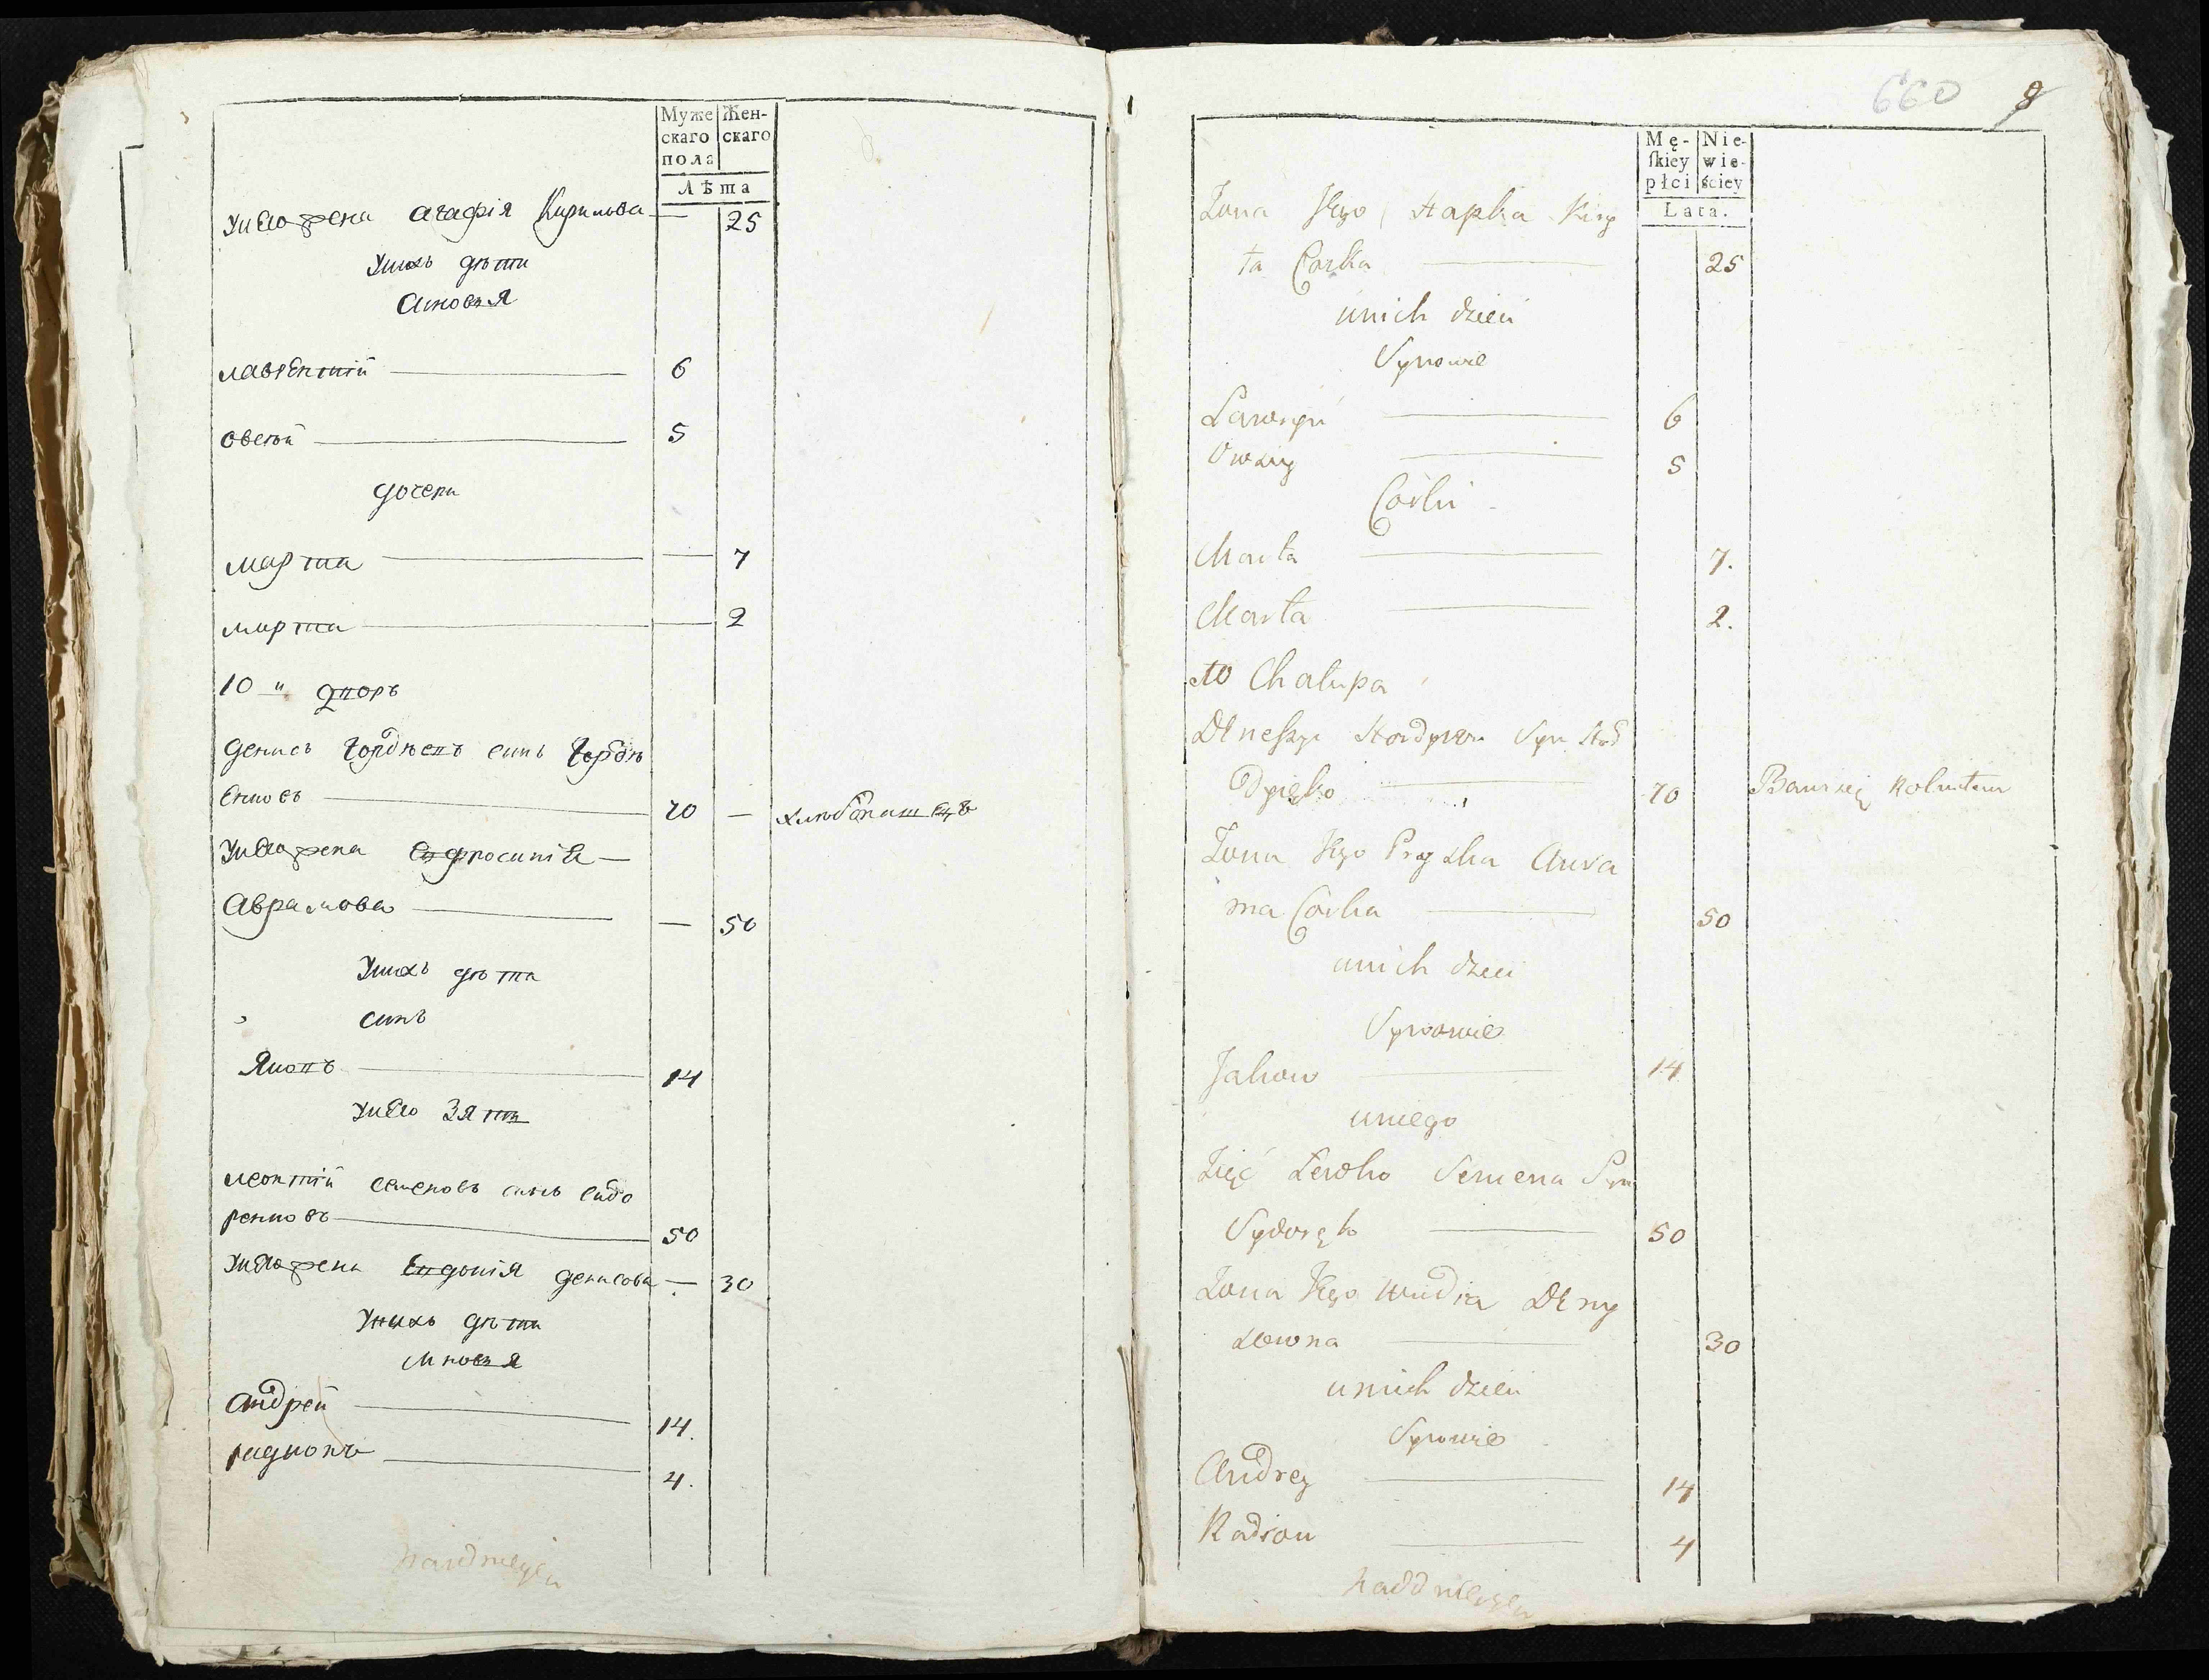 Муже
скаго
пола
Жен-
скаго
Лѣта
Унего жена Агафія Кирилова — 25
Унихъ дѣти
Синовья
Лаврентій 6
Овсѣй 5
дочери
Марта — 7
Марта — 2
10 " дворъ
Денисъ Гордѣевъ синъ Гордѣ
енковъ 70 — хлибопашецъ
Унего жена Евфросинія —
Аврамова — 50
Унихъ дѣти
синъ
Яковъ 14
Унего зять
Леонтій Семеновъ синъ Сидо
ренковъ 50
Унего жена Евдокія Денисова — 30
Унихъ дѣти
синовья
Андрей 14.
Радионъ 4.
660 9
Mę-
ſkiey
płci
Nie-
wie-
ściey
Lata.
Zona Jego Hapka Kiry
ła Corka 25
unich dzieci
Synowie
Ławryn 6
Owziy 5
Corki
Marta 7.
Marta 2.
10 Chałupa
Denesżyi Hordyiow Syn Hord
Dyięko 70 Bawiący Rolnictwem
Zona Jego Pryzka Awra
ma Corka 50
unich dzieci
Synowie
Jakow 14
uniego
Zięć Lewko Semena Syn
Sydoręko 50
Zona Jego Wudia Deny
sowna 30
unich dzieci
Synowie
Andrey 14
Radion 4